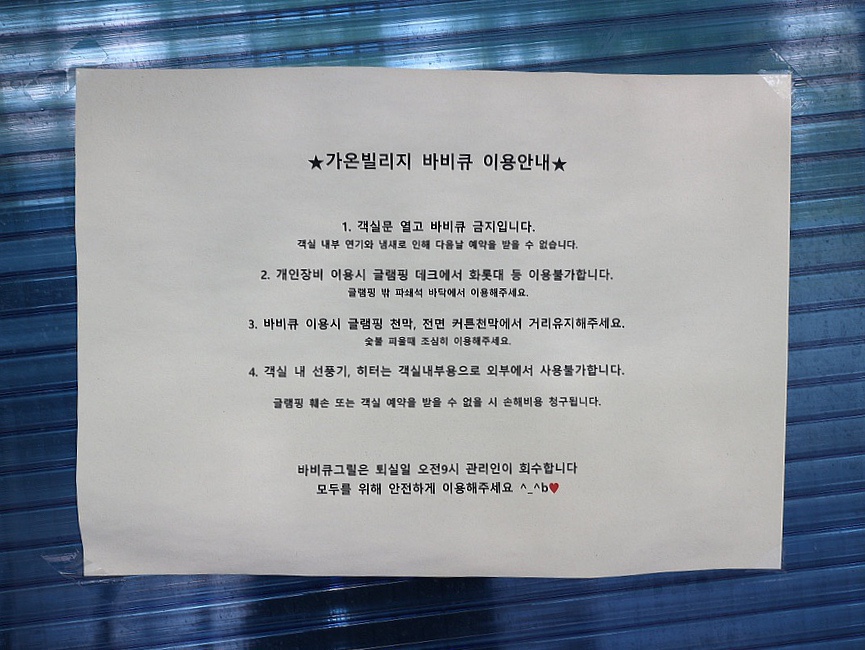 ★가온빌리지 바비큐 이용안내★
1. 객실문 열고 바비큐 금지입니다.
객실 내부 연기와 냄새로 인해 다음날 예약을 받을 수 없습니다.
2. 개인장비 이용시 글램핑 데크에서 화롯대 등 이용불가합니다.
글램핑 밖 파쇄석 바닥에서 이용해주세요.
3. 바비큐 이용시 글램핑 천막, 전면 커튼천막에서 거리유지해주세요.
숯불 피울때 조심히 이용해주세요.
4. 객실 내 선풍기, 히터는 객실내부용으로 외부에서 사용불가합니다.
글램핑 훼손 또는 객실 예약을 받을 수 없을 시 손해비용 청구됩니다.
바비큐그릴은 퇴실일 오전9시 관리인이 회수합니다
모두를 위해 안전하게 이용해주세요 ^_^b♥